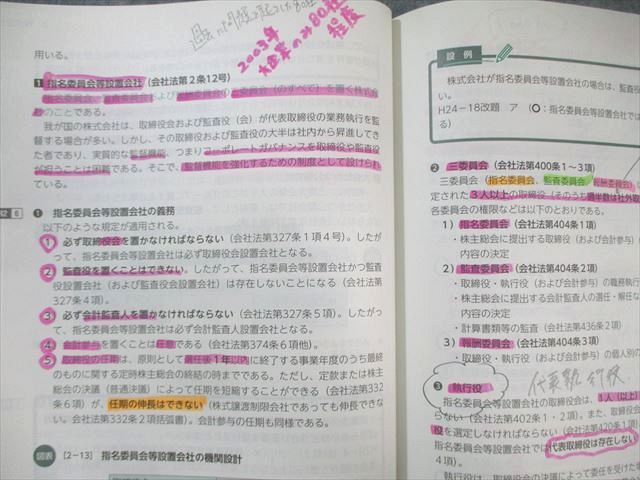 過去に問題を起こした80社
2003年
大企業のみ80社
程度
用いる。
1 指名委員会等設置会社(会社法第2条12号)
指名委員会、監査委員会および報酬委員会(三委員会のすべて)を置く株式会社
のことである。
我が国の株式会社は、取締役会および監査役(会)が代表取締役の業務執行を監
督する場合が多い。しかし、その取締役および監査役の大半は社内から昇進してき
た者であり、実質的な監督機能、つまりコーポレートガバナンスを取締役や監査役
が担うことは困難である。そこで、監督機能を強化するための制度として設けられ
ている。
❶ 指名委員会等設置会社の義務
以下のような規定が適用される。
① 必ず取締役会を置かなければならない(会社法第327条1項4号)。したが
って、指名委員会等設置会社は必ず取締役会設置会社となる。
② 監査役を置くことはできない。したがって、指名委員会等設置会社かつ監査
役設置会社(および監査役会設置会社)は存在しないことになる(会社法第
327条4項)。
③ 必ず会計監査人を置かなければならない(会社法第327条5項)。したがっ
て、指名委員会等設置会社は必ず会計監査人設置会社となる。
④ 会計参与を置くことは任意である(会社法第374条6項他)。
⑤ 取締役の任期は、原則として選任後1年以内に終了する事業年度のうち最終
のものに関する定時株主総会の終結の時までである。ただし、定款または株主
総会の決議(普通決議)によって任期を短縮することができる(会社法第332
条6項)が、任期の伸長はできない(株式譲渡制限会社であっても伸長できな
い。会社法第332条2項括弧書)。会計参与の任期も同様である。
図表 [2-13] 指名委員会等設置会社の機関設計
6
設例
株式会社が指名委員会等設置会社の場合は、監査役
い。
H24-18改題 ア(〇:指名委員会等設置会社では
る)
❷ 三委員会(会社法第400条1~3項)
三委員会(指名委員会、監査委員会、報酬委員会)
定された3人以上の取締役(そのうち過半数は社外取
各委員会の権限などは以下のとおりである。
1)指名委員会(会社法第404条1項)
・株主総会に提出する取締役(および会計参与)
内容の決定
2)監査委員会(会社法第404条2項)
・取締役・執行役(および会計参与)の職務執行
・株主総会に提出する会計監査人の選任・解任な
の内容の決定
・計算書類等の監査(会社法第436条2項)
3)報酬委員会(会社法第404条3項)
・取締役・執行役(および会計参与)の個人別の
代表執行役
❸ 執行役
指名委員会等設置会社の取締役会は、1人(以上)
らない(会社法第402条1・2項)。また、取締役
役を選定しなければならない(会社法第420条1項
指名委員会等設置会社では代表取締役は存在しない
4項)。
執行役は、取締役会の決議によって委任を受けた